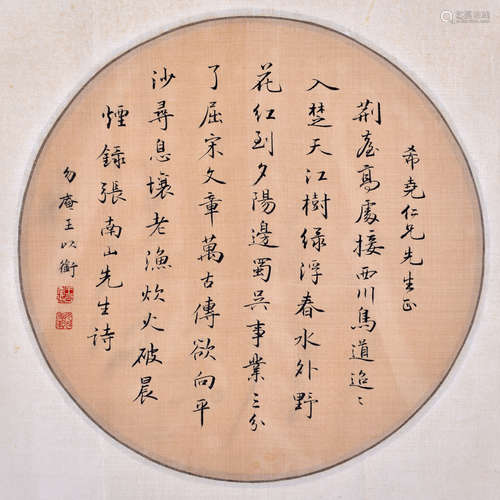 希堯仁兄先生正
荆臺高處接西川馬道迢〻
入楚天江樹綠浮春水外野
花紅到夕陽邊蜀吳事業三分
了屈宋文章萬古傳欲向平
沙尋息壤老漁炊火破晨
煙錄張南山先生詩
勿庵王以銜